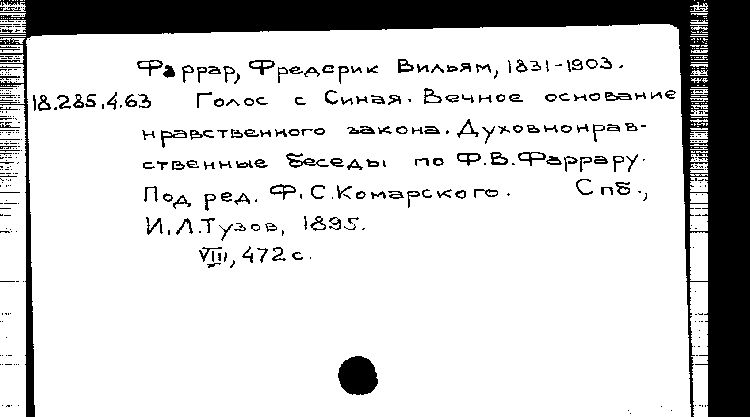 Фаррар, Фредерик Вильям, 1831-1903.
18.285.4.63 Голос с Синая. Вечное основание
нравственного закона. Духовнонрав-
ственные беседы по Ф.В.Фаррару.
Под ред. Ф.С.Комарского. Спб.,
И.Л.Тузов, 1895.
VIII, 472 с.